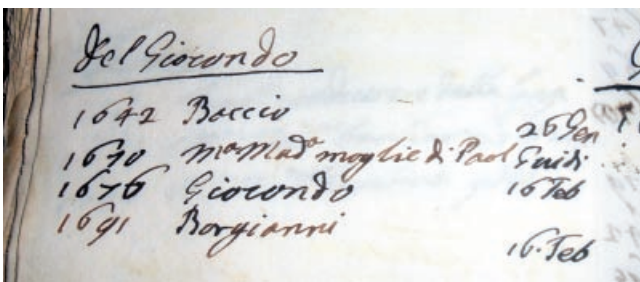 Del Giocondo
1642 Baccio 26 Gen
1670 Mª Madª moglie di Paol Guidi
1676 Giocondo 16 Feb
1691 Borgianni 16. Feb